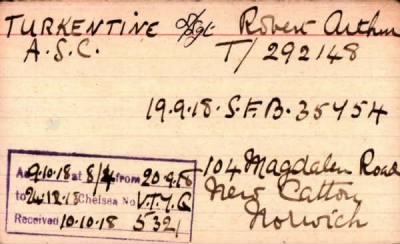 TURKENTINE A/Sgt Robert Arthur
A.S.C. T/292148
19.9.18. S.F.B. 35454
104 Magdalen Road
New Catton
Norwich
9.10.18 at 8/4 from 20.9.18
to 24.12.18 Chelsea No V.T.Y.G
Received 10.10.18 5321